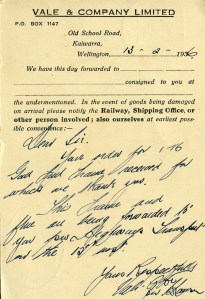 VALE & COMPANY LIMITED
P.O. BOX 1147
Old School Road,
Kaiwarra,
Wellington, 13 - 2 - 1936
We have this day forwarded to
consigned to you at
the undermentioned. In the event of goods being damaged
on arrival please notify the Railway, Shipping Office, or
other person involved; also ourselves at earliest
possible convenience:—
Dear Sir.
Your order for 1 -
received for
which we thank you.
This and
flue are being forwarded to
you per Transport
on the 13th inst.
Yours Respectfully